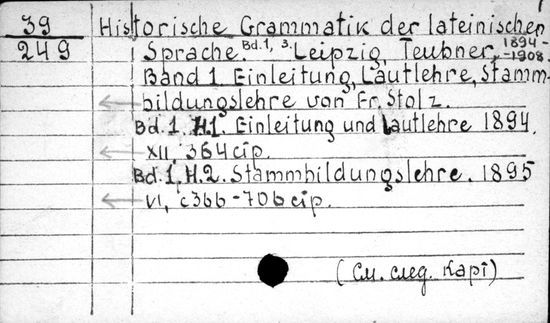 39
249
Historische Grammatik der lateinischen
Sprache. Bd. 1, 3. Leipzig, Teubner, 1894-
-1908.
Band 1. Einleitung, Lautlehre, Stamm-
bildungslehre von Fr. Stolz.
Bd. 1, H.1. Einleitung und Lautlehre 1894.
XII, 364 cip.
Bd. 1, H.2. Stammbildungslehre. 1895
VI, c 366-706 cip.
(См. след. карт)